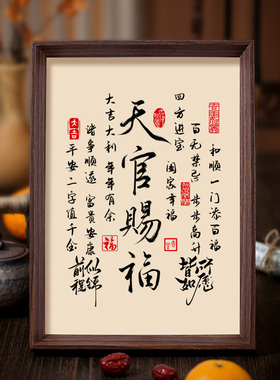 和顺一门添百福
百无禁忌 步步高升
皆如所愿
四方进宝
阖家幸福
天官赐福
大吉大利 年年有余
诸事顺遂 富贵安康
平安二字值千金
前程似锦
大吉
福